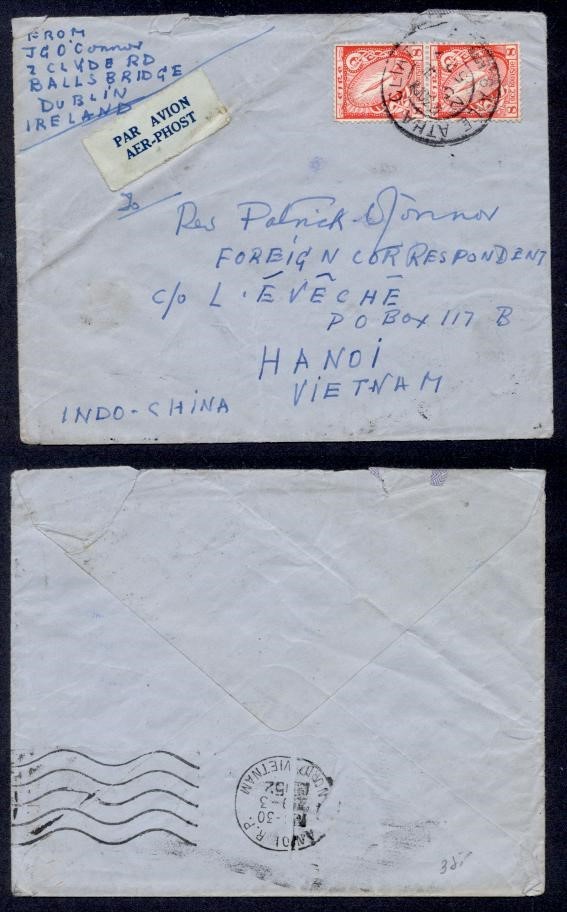 FROM
JGO'Connor
2 CLYDE RD
BALLSBRIDGE
DUBLIN
IRELAND
PAR AVION
AER-PHOST
To
Rev Patrick O'Connor
FOREIGN CORRESPONDENT
c/o L. ÉVÊCHÉ
PO Box 117 B
HANOI
VIETNAM
INDO-CHINA
ÉIRE
ATHA CLIATH
HANOI R.P.
NORD VIETNAM
-30
9-3
52